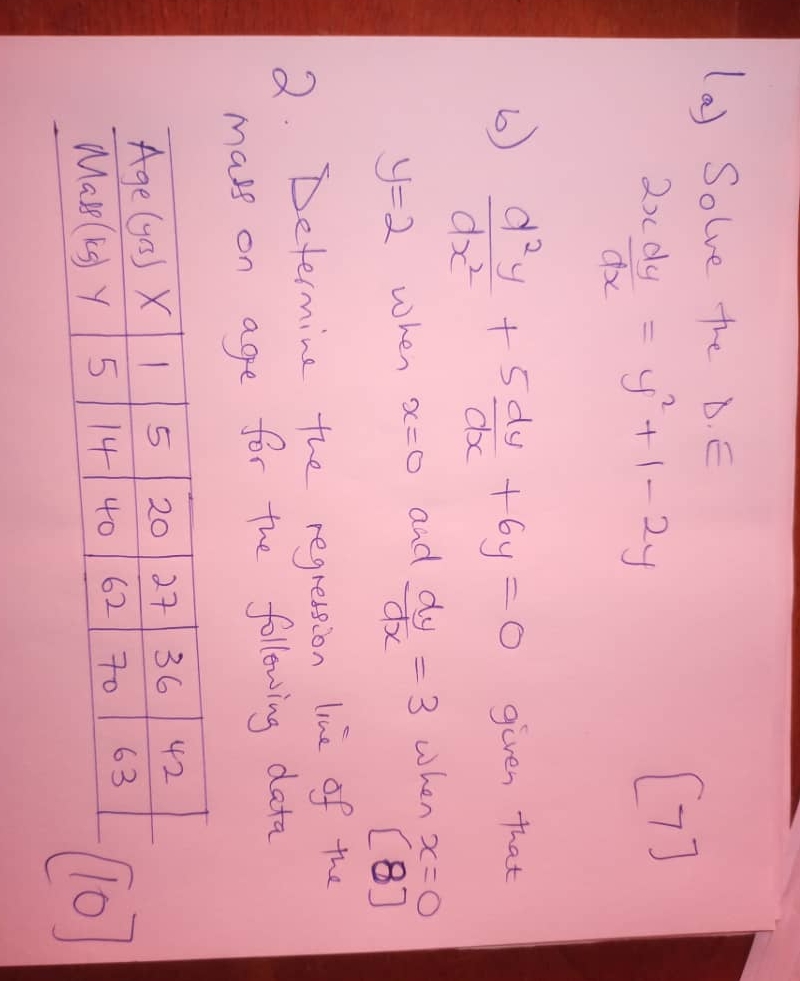 1a) Solve the D.E
2x dy/dx = y² + 1 - 2y [7]
b) d²y/dx² + 5 dy/dx + 6y = 0 given that
y=2 when x=0 and dy/dx = 3 when x=0
[8]
2. Determine the regression line of the
mass on age for the following data
Age (yrs) X | 1 | 5 | 20 | 27 | 36 | 42
Mass (kg) Y | 5 | 14 | 40 | 62 | 70 | 63
[10]